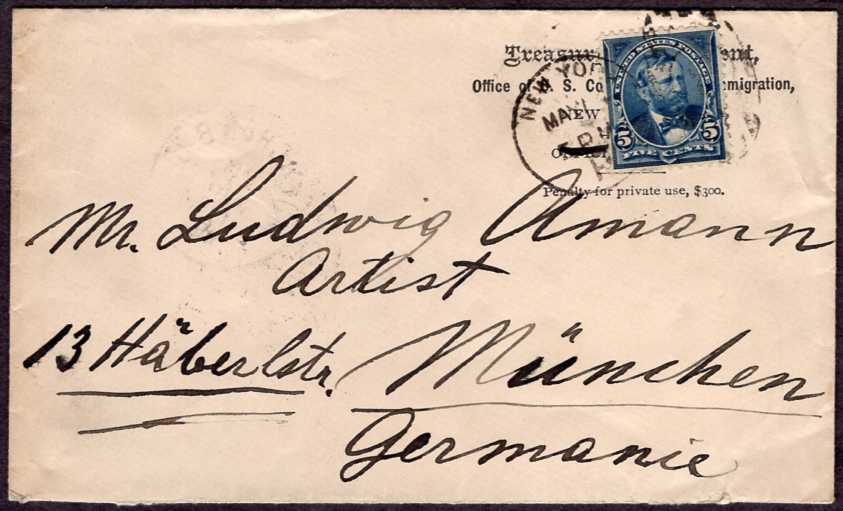 Treasur ent,
Office of U. S. Co mmigration,
NEW
Penalty for private use, $300.
UNITED STATES POSTAGE
5 5
FIVE CENTS
NEW YORK
MAY
Mr. Ludwig Amann
Artist
13 Häberlstr. München
Germanie